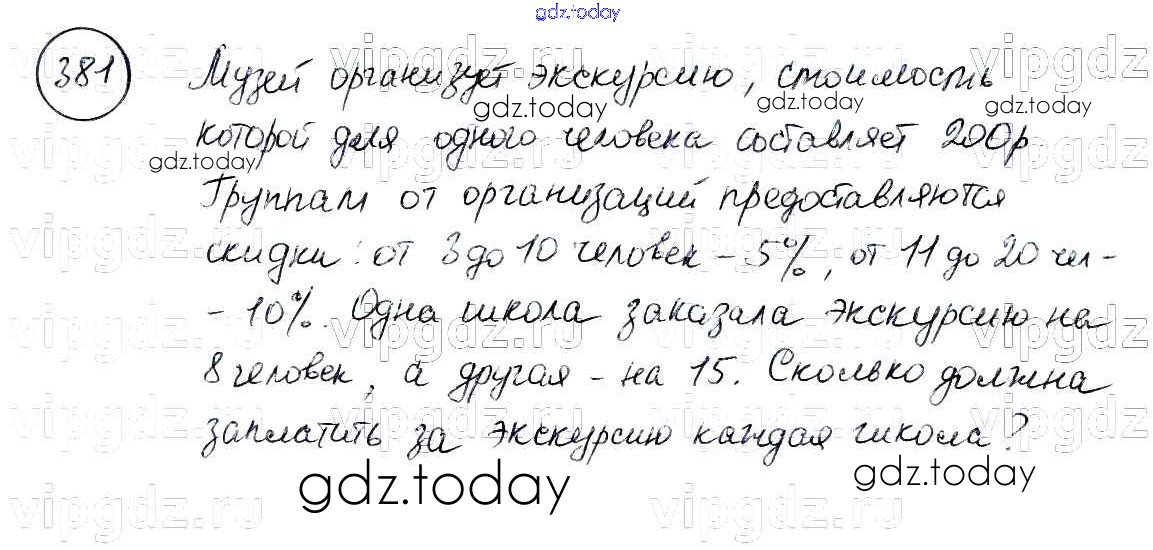 gdz.today
381 Музей организует экскурсию, стоимость
gdz.today gdz.today
которой для одного человека составляет 200р
gdz.today
Группам от организаций предоставляются
скидки: от 3 до 10 человек - 5%, от 11 до 20 чел-
- 10%. Одна школа заказала экскурсию на
8 человек, а другая - на 15. Сколько должна
заплатить за экскурсию каждая школа?
gdz.today gdz.today
vipgdz.ru